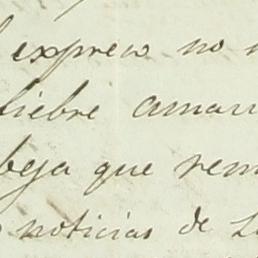 expreso no
fiebre amari
beja que rem
noticias de